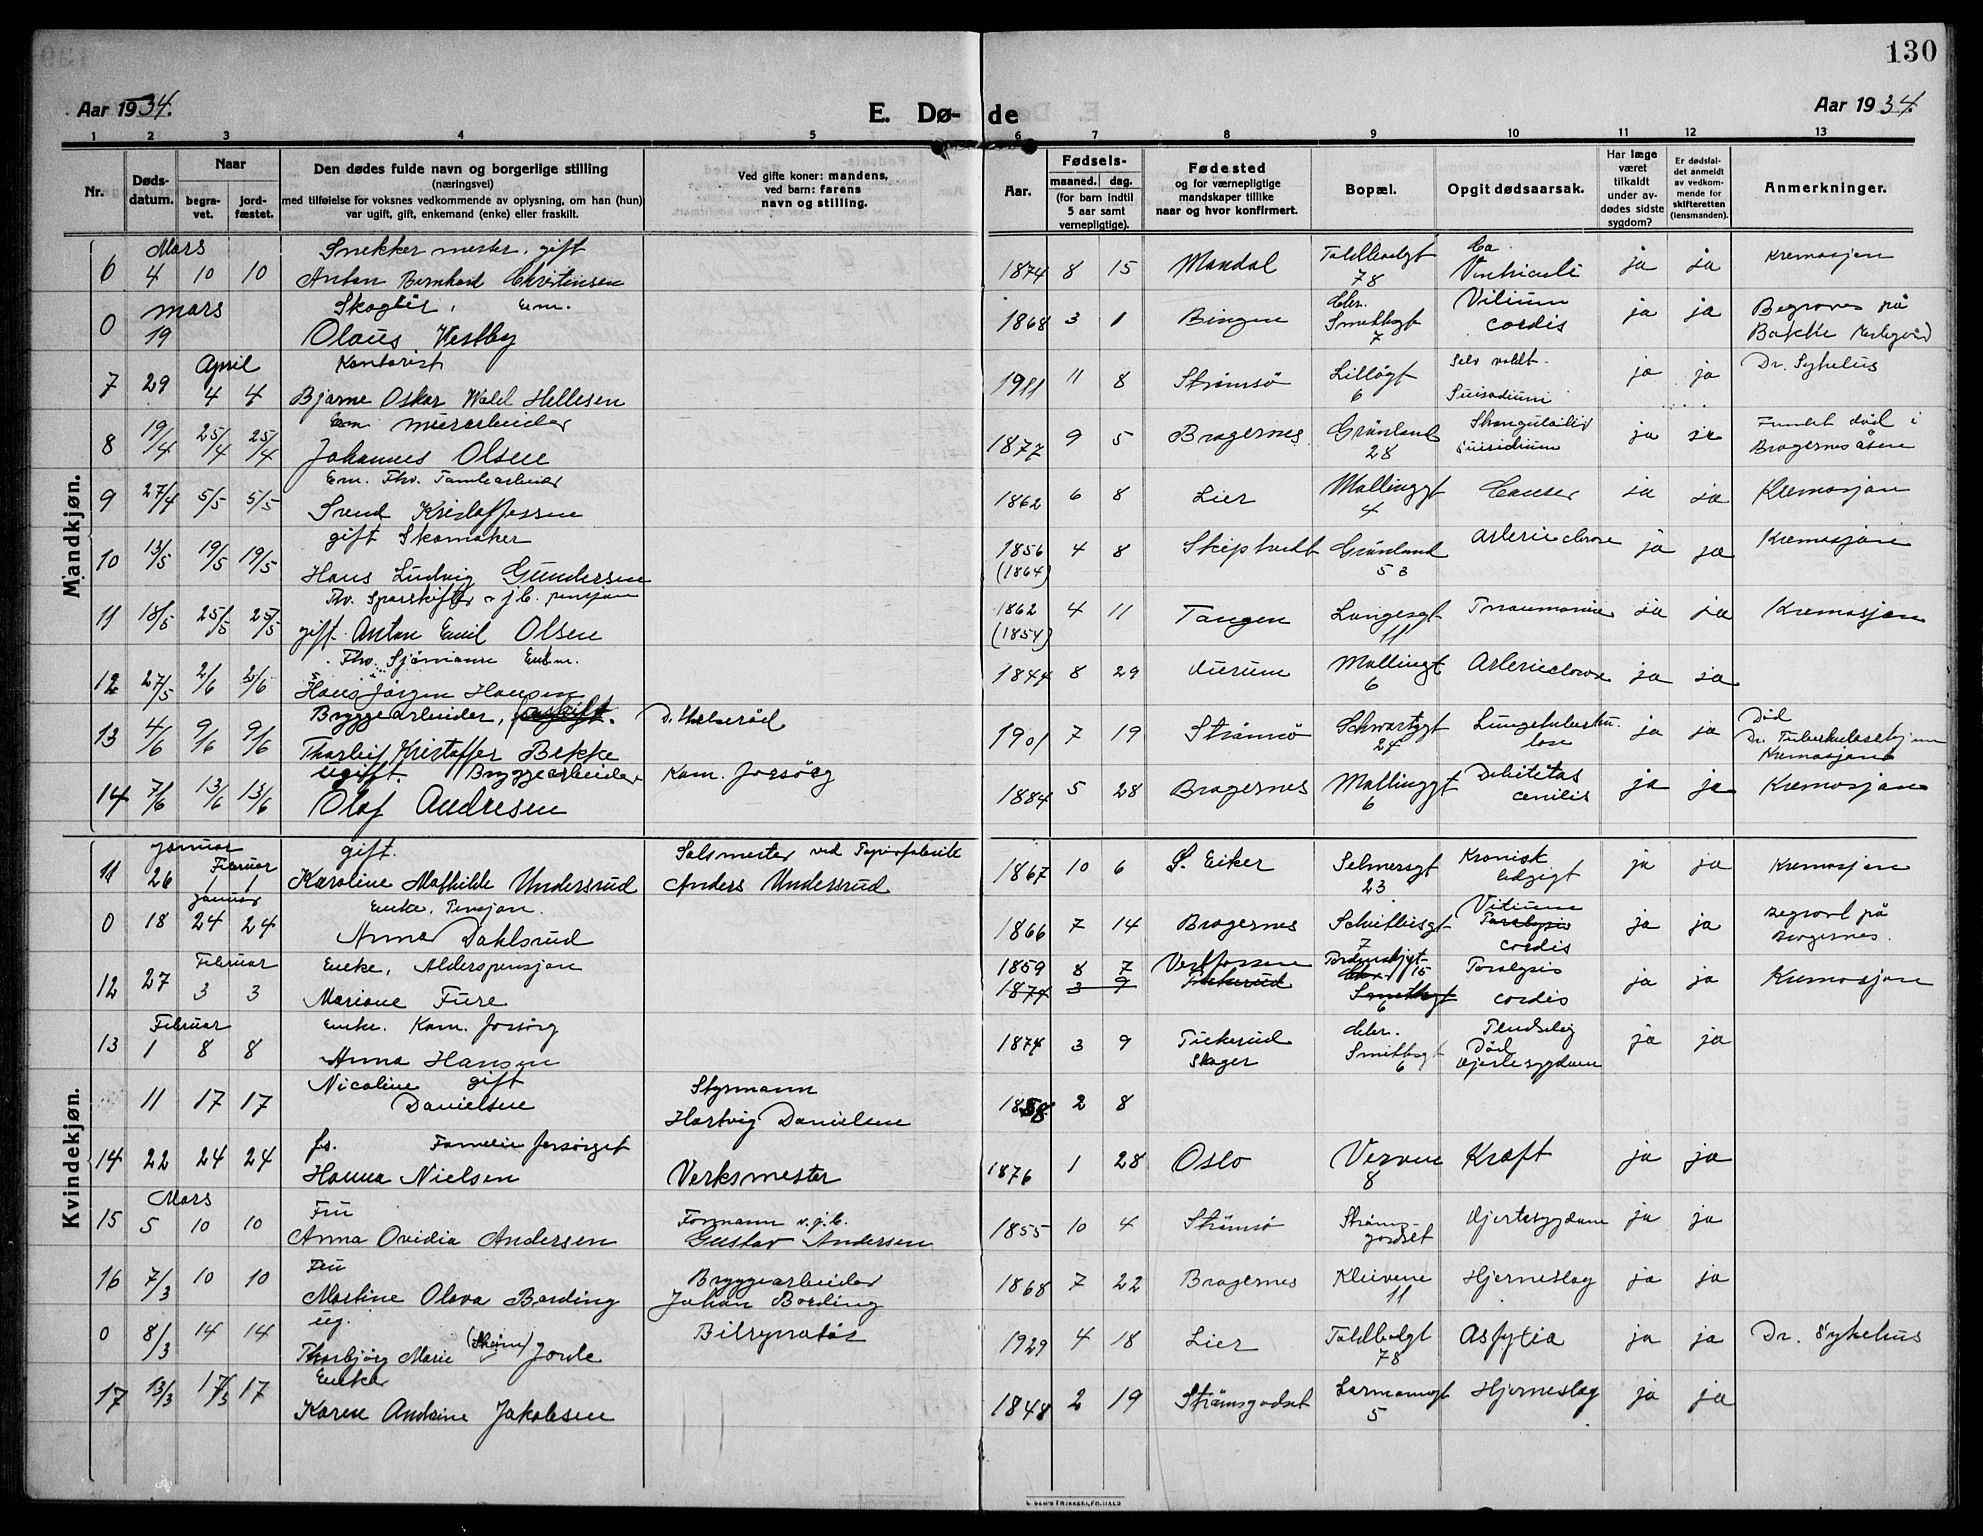 130
Aar 1934.
E. Dø- de
Aar 1934
1 2 3 4 5 6 7 8 9 10 11 12 13
Nr.
Døds-
datum.
Naar
begra-
vet.
jord-
fæstet.
Den dødes fulde navn og borgerlige stilling
(næringsvei)
med tilføielse for voksnes vedkommende av oplysning, om han (hun)
var ugift, gift, enkemand (enke) eller fraskilt.
Ved gifte koner: mandens,
ved barn: farens
navn og stilling.
Aar.
Fødsels-
maaned. dag.
(for barn indtil
5 aar samt
vernepligtige).
Fødested
og for værnepligtige
mandskaper tillike
naar og hvor konfirmert.
Bopæl.
Opgit dødsaarsak.
Har læge
været
tilkaldt
under av-
dødes sidste
sygdom?
Er dødsfal-
det anmeldt
av vedkom-
mende for
skifteretten
(lensmanden).
Anmerkninger.
Mandkjøn.
Mars Snekker mester, gift Ca
6 4 10 10 Anton Bernhard Christensen 1874 8 15 Mandal Toldbodgt 78 Ventriculi ja ja Kremasjon
mars Em.
0 19 Olaus Vestby 1868 3 1 Bingen Chr. Smithsgt 7 Vitium cordis ja ja Begraves på Bakke
April Kontorist
7 29 4 4 Bjarne Oskar Hellesen 1911 11 8 Strømsö 6 Selv voldt ja ja Dr. Sykehus
Em. murarbeider
8 19/4 25/4 25/4 Johannes Olsen 1877 9 5 Bragernes Grönland 28 Suisidium ja ja Fundet död i Bragernesåsen
Em. Fhv.
9 27/4 5/5 5/5 Svend Kristoffersen 1862 6 8 Lier Möllinggt 4 Canser ja ja Kremasjon
gift Skomaker
10 13/5 19/5 19/5 Hans Ludvig Gundersen 1856 (1864) 4 8 Skiptvedt Grönland 53 ja ja Kremasjon
Fhv. j.b. pensjon
11 18/5 25/5 25/5 gift Anton Emil Olsen 1862 (1854) 4 11 Tangen Langesgt 11 ja ja Kremasjon
Fhv. Sjömann Enkm.
12 27/5 2/6 2/6 Hans Jörgen Hansen 1844 8 29 Hurum Möllinggt 6 ja ja
Bryggearbeider,
13 4/6 9/6 9/6 Thorleif Kristoffer Bekke 1901 7 19 Strömsö Schwartzgt 24 Lungetuberku- lose ja ja Död Dr. Tuberkulosehjem Kremasjon
ugift. Bryggearbeider Kom. forsörg
14 7/6 13/6 13/6 Olaf Andresen 1884 5 28 Bragernes Möllinggt 6 Debilitas cenilis ja ja Kremasjon
Kvindekjøn.
januar Februar gift. Salsmester ved Papirfabrikk
11 26 1 1 Karoline Mathilde Undersrud Anders Undersrud 1867 10 6 Ø. Eiker Selmersgt 23 Kronisk ja ja Kremasjon
januar Enke, Pensjon.
0 18 24 24 Anna Dahlsrud 1866 7 14 Bragernes 7 Vitium cordis ja ja Begravt på Bragernes.
Februar Enke, Alderspensjon
12 27 3 3 Mariane Fure 1859 8 7 Vestfossen 15 Paralysis cordis ja ja Kremasjon
1874 3 9
Februar Enke. Kom. forsörg
13 1 8 8 Anna Hansen 1874 3 9 Skoger Chr. Smithsgt 6 Pludselig Död Hjertesygdom ja ja
Nicoline gift Styrmann
11 17 17 Danielsen Hartvig Danielsen 1858 2 8
fs. Familie forsörget
14 22 24 24 Hanna Nielsen Verksmester 1876 1 28 Oslo Vervene 8 Kræft ja ja
Mars Fru Formann v. j.b.
15 5 10 10 Anna Ovidia Andersen Gustav Andersen 1855 10 4 Strömsö Ströms- godset Hjertesygdom ja ja
Fru Bryggearbeider
16 7/3 10 10 Martine Olava Bording Johan Bording 1868 7 22 Bragernes Kleivene 11 Hjerneslag ja ja
ug.
0 8/3 14 14 Thorbjörg Marie Jorde 1929 4 18 Lier Toldbodgt 78 Asfytia ja ja Dr. Sykehus
Enke
17 13/3 17/3 17 Karen Andrine Jakobsen 1848 2 19 Strömsgodset 5 Hjerneslag ja ja